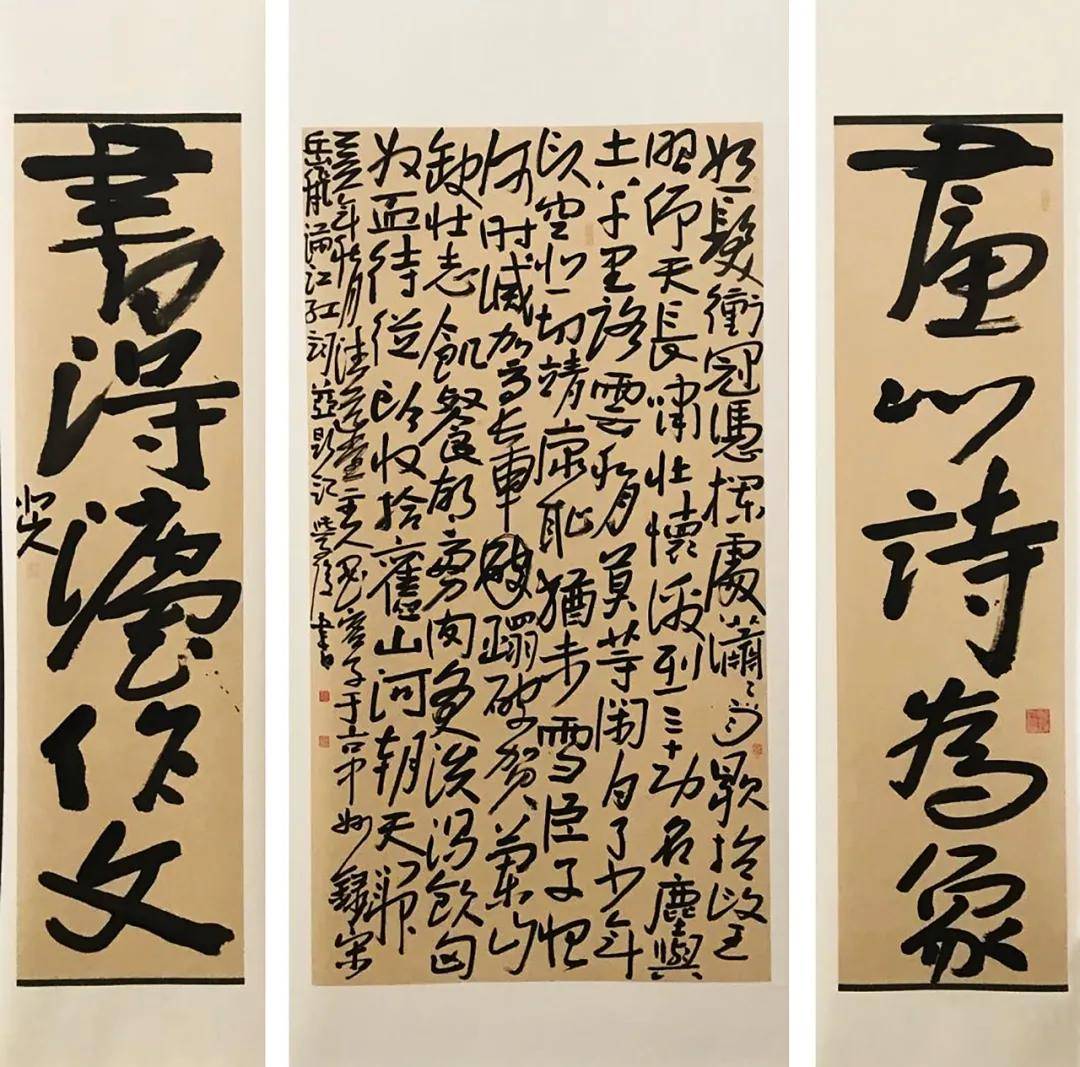 畫以詩為象
怒髮衝冠憑欄處瀟瀟雨歇抬望
眼仰天長嘯壯懷激烈三十功名塵與
土八千里路雲和月莫等閑白了少年
頭空悲切靖康恥猶未雪臣子恨
何時滅駕長車蹋破賀蘭山
缺壯志飢餐胡虜肉笑談渴飲匈
奴血待從頭收拾舊山河朝天闕
年秋月主人客子于京中錄宋
岳飛滿江紅詞並題記書
書得作文